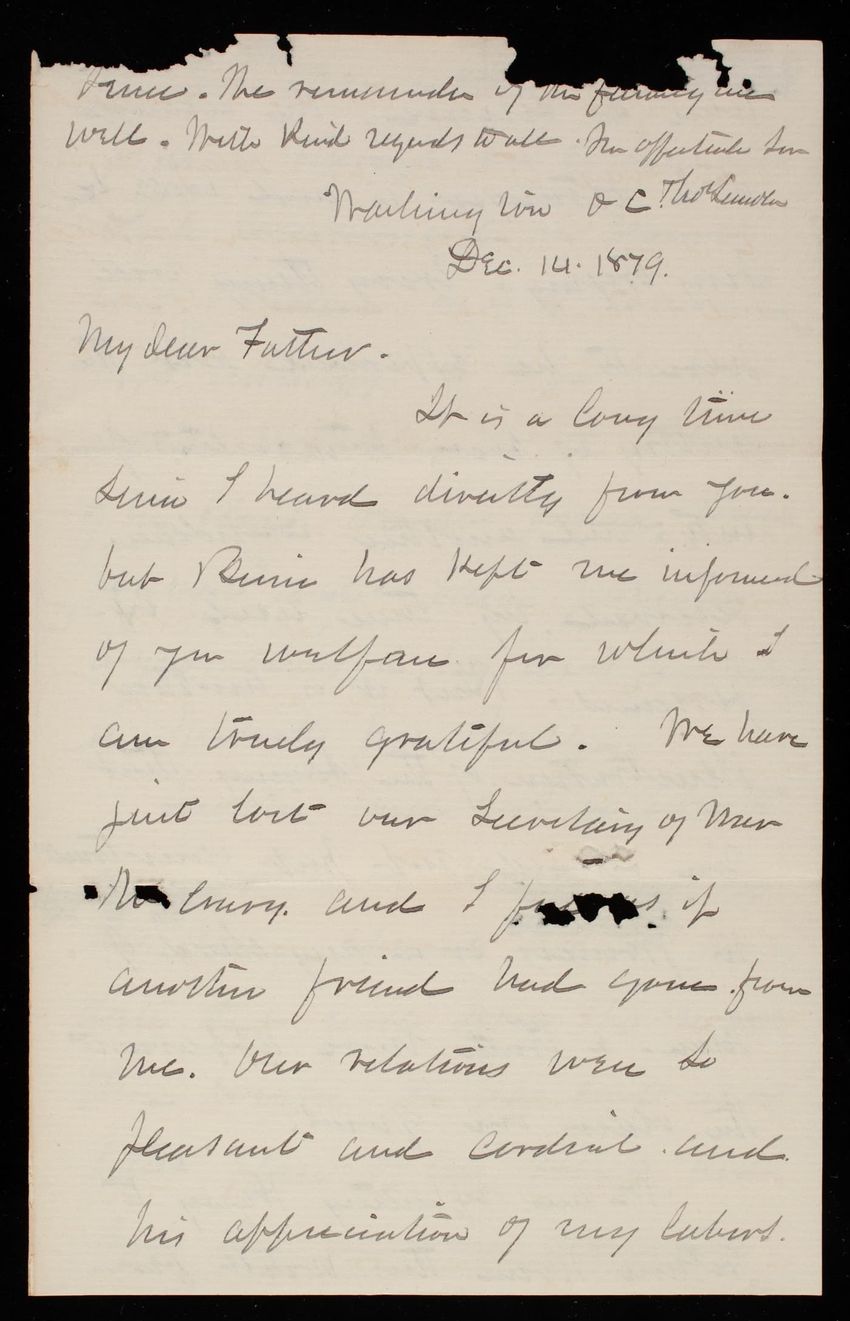 time. The remainder of the family are
well. With Kind regards to all. Your affectionate Son
Washington D C. Thos Lincoln
Dec. 14. 1879.
My dear Father.
It is a long time
since I heard directly from you.
but has kept me informed
of your welfare for which I
am truely grateful. We have
just lost our Secretary of War
McCrary. and I feel as if
another friend had gone from
me. Our relations were so
pleasant and cordial. and
his appreciation of my labors.